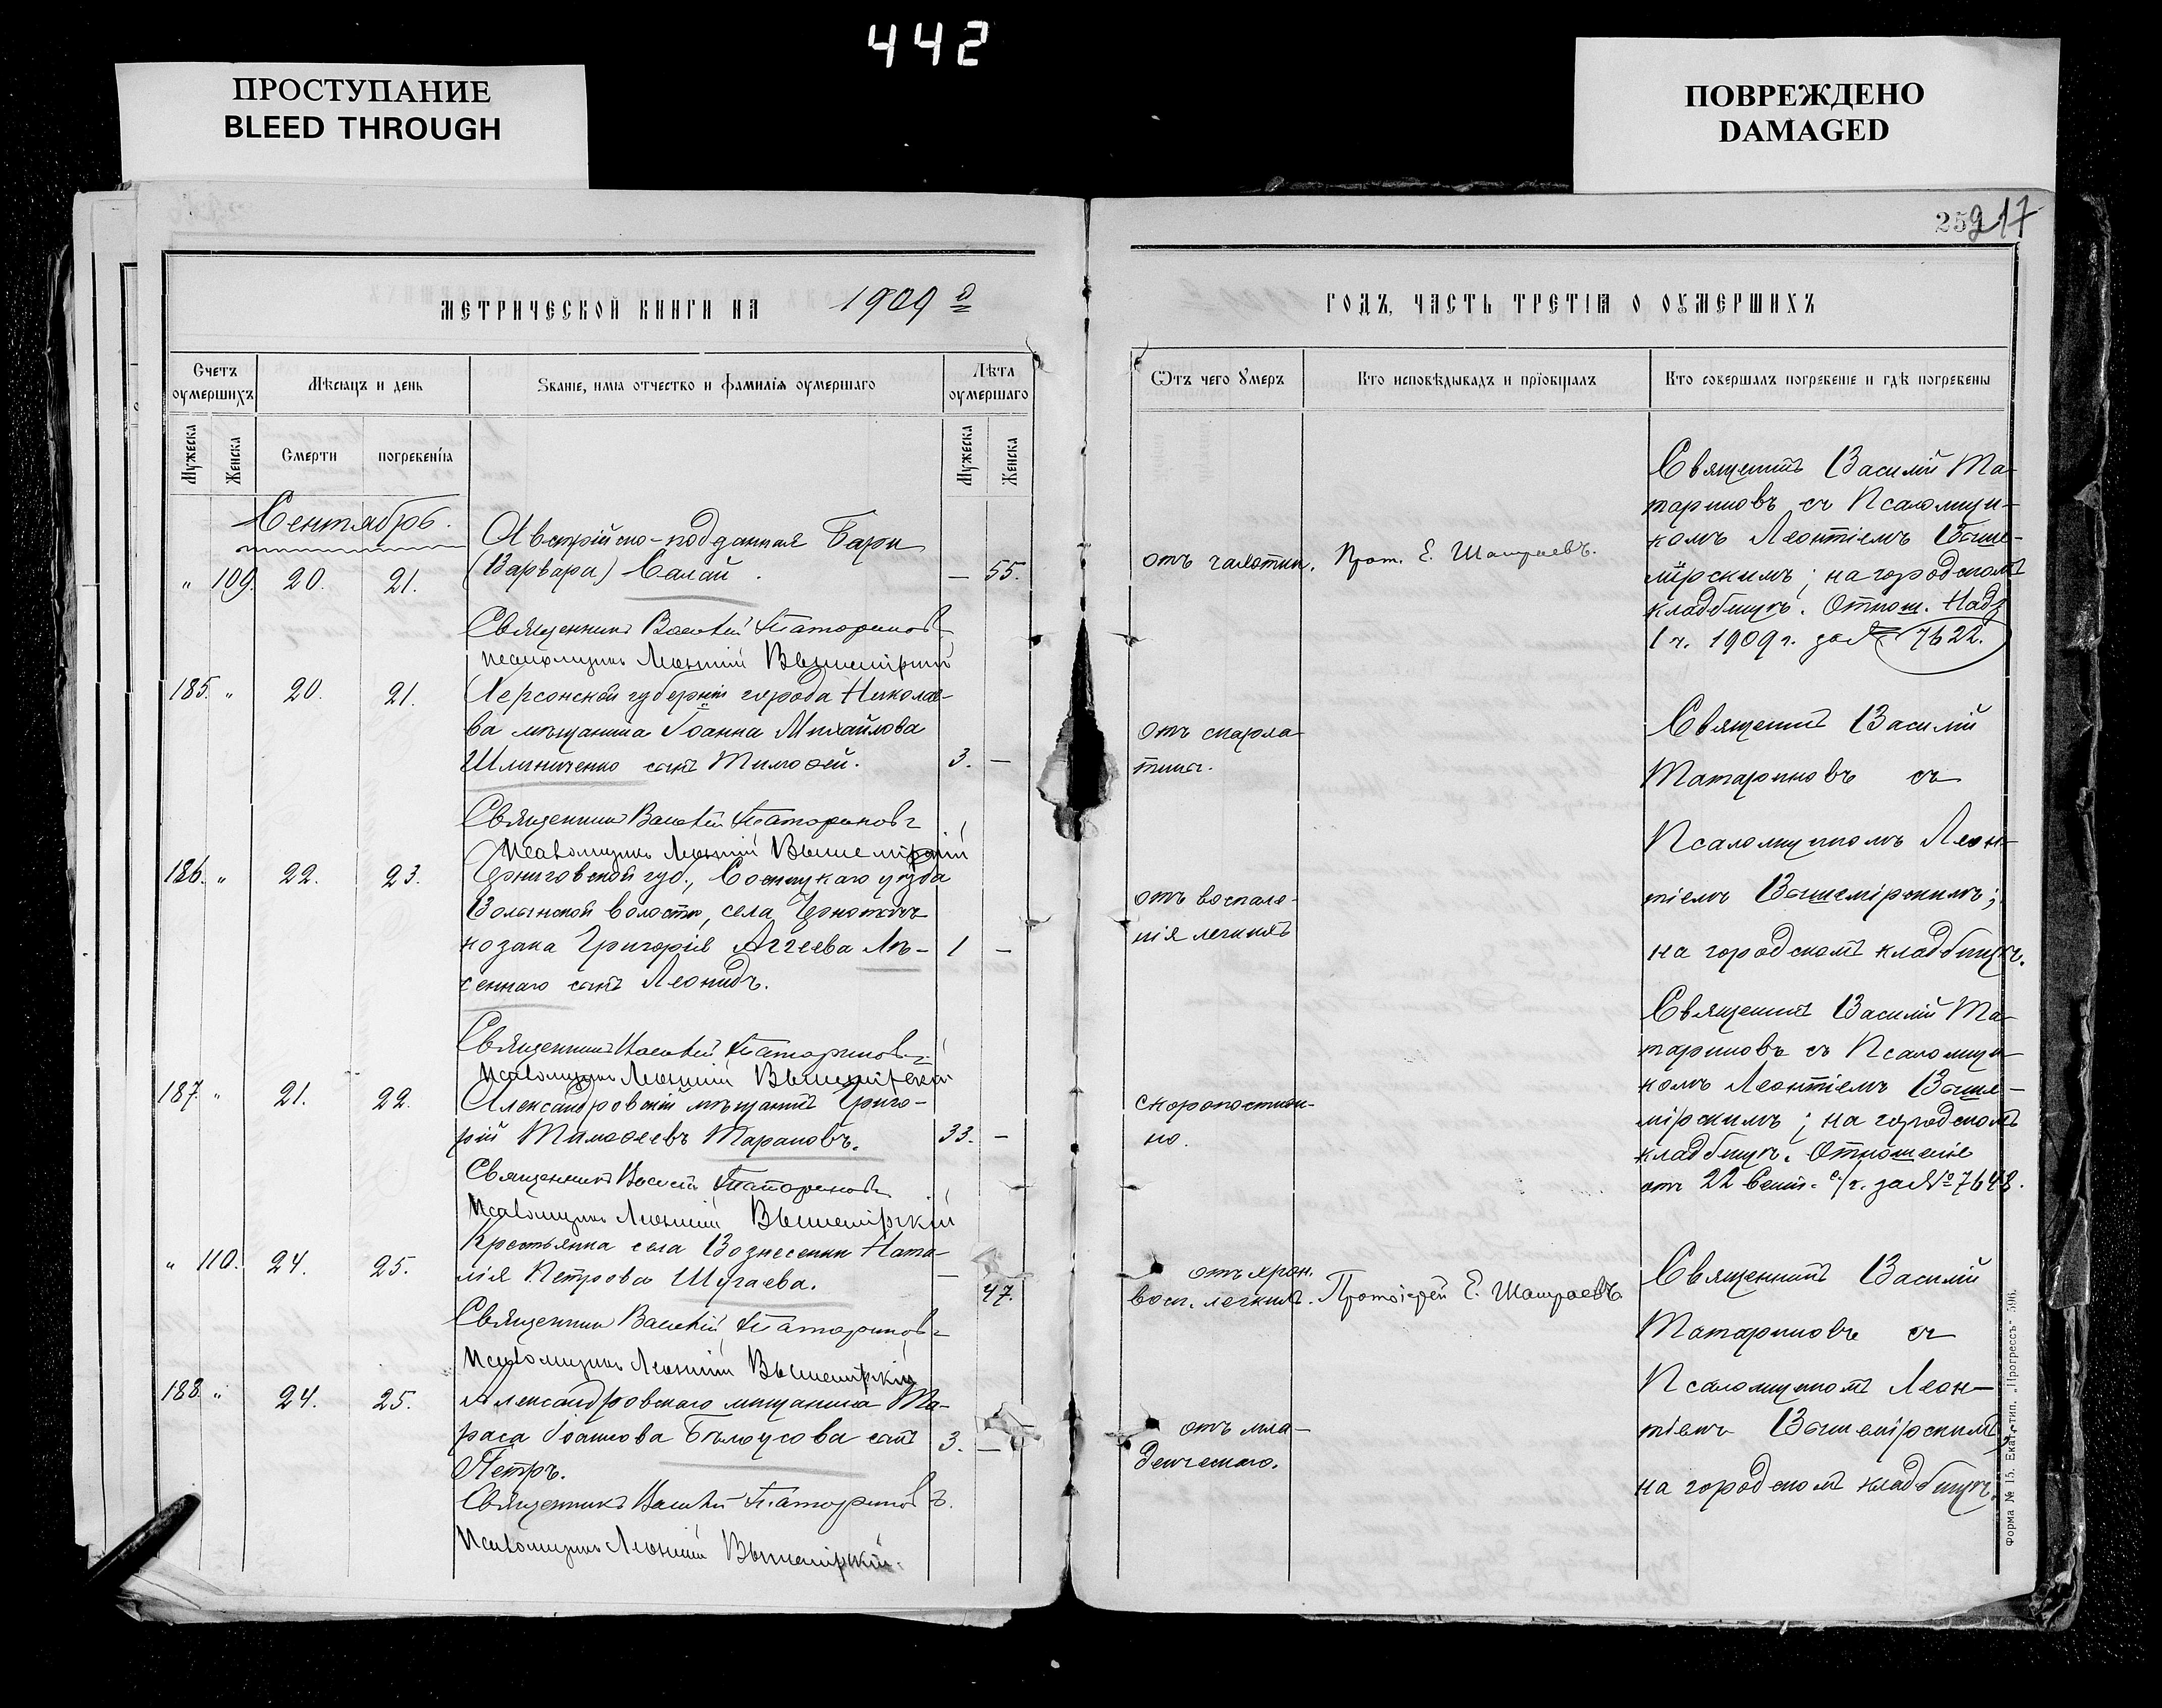 442
ПРОСТУПАНИЕ
BLEED THROUGH
ПОВРЕЖДЕНО
DAMAGED
217
МЕТРИЧЕСКОЙ КНИГИ НА 1909 ГОДЪ, ЧАСТЬ ТРЕТІѦ О ОУМЕРШИХЪ
Счетъ оумершихъ
Мѣсѧцъ и день
Званіе, имѧ отчество и фамиліѧ оумершаго
Лѣта оумершаго
Мужеска
Женска
Смерти
погребеніѧ
Мужеска
Женска
Ѿтъ чего умеръ
Кто исповѣдывалъ и прїобщалъ
Кто совершалъ погребеніе и гдѣ погребены
Сентябрь.
Австрійско-подданная
" 109. 20. 21. (Варвара) Салай. — 55.
отъ Прот. Е.
Священникъ Василій Та-
тариновъ съ Псаломщи-
комъ Леонтіемъ Выше-
мірскимъ; на городскомъ
кладбищѣ. Отнош. Над.
1 ч. 1909 г. за № 7622.
Священникъ Василій Татариновъ
Псаломщикъ Леонтій Вышемірскій
185. " 20. 21. Херсонской губерніи города Николае-
ва мѣщанина Іоанна Михайлова
Шлиниченко сынъ Тимоѳей. 3. —
отъ скарла-
тины.
Священникъ Василій
Татариновъ съ
Псаломщикомъ Леон-
тіемъ Вышемірскимъ;
на городскомъ кладбищѣ.
Священникъ Василій Татариновъ
Псаломщикъ Леонтій Вышемірскій
186. " 22. 23. Черниговской губ., Сосницкаго уѣзда
Волынской волости, села
козака Григорія Аггеева Лѣ- 1 —
сеннаго сынъ Леонидъ.
отъ воспале-
нія легкихъ
Священникъ Василій Татариновъ
Псаломщикъ Леонтій Вышемірскій
187. " 21. 22. Александровскій мѣщанинъ Григо-
рій Тимоѳеевъ Тарановъ. 33. —
скоропостиж-
но.
Священникъ Василій Та-
тариновъ съ Псаломщи-
комъ Леонтіемъ Выше-
мірскимъ; на городскомъ
кладбищѣ. Отношеніе
отъ 22 Сент. с/г. за № 7648.
Священникъ Василій Татариновъ
Псаломщикъ Леонтій Вышемірскій
" 110. 24. 25. Крестьянка села Вознесенки Ната-
лія Петрова Шугаева. — 47.
отъ хрон.
восп. легкихъ. Протоіерей Е.
Священникъ Василій
Татариновъ съ
Псаломщикомъ Леон-
тіемъ Вышемірскимъ
на городскомъ кладбищѣ.
Священникъ Василій Татариновъ
Псаломщикъ Леонтій Вышемірскій
188. " 24. 25. Александровскаго мѣщанина Та-
раса Іоаннова Бѣлоусова сынъ 3. —
Петръ.
отъ мла-
денческаго.
Священникъ Василій Татариновъ.
Псаломщикъ Леонтій Вышемірскій.
Форма № 15. Екат., тип. „Прогрессъ" 596.